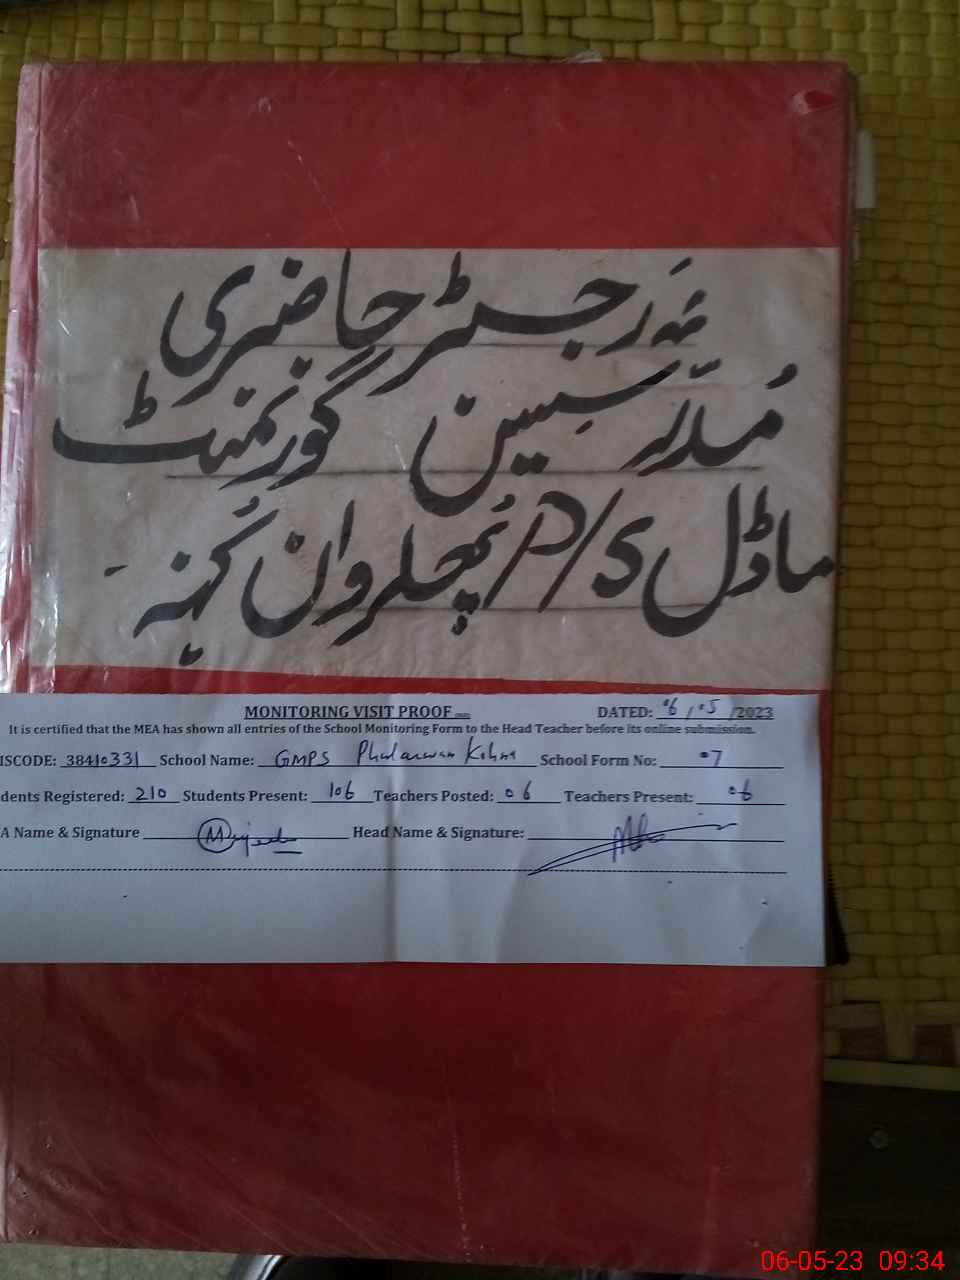 رجسٹر حاضری
مُدرّسین گورنمنٹ
ماڈل P/S پُھلروان کُہنہ ۔
MONITORING VISIT PROOF DATED: 06/05/2023
It is certified that the MEA has shown all entries of the School Monitoring Form to the Head Teacher before its online submission.
ISCODE: 38410331 School Name: GMPS Phularwan Kohna School Form No: 07
dents Registered: 210 Students Present: 106 Teachers Posted: 06 Teachers Present: 06
A Name & Signature Head Name & Signature:
06-05-23 09:34